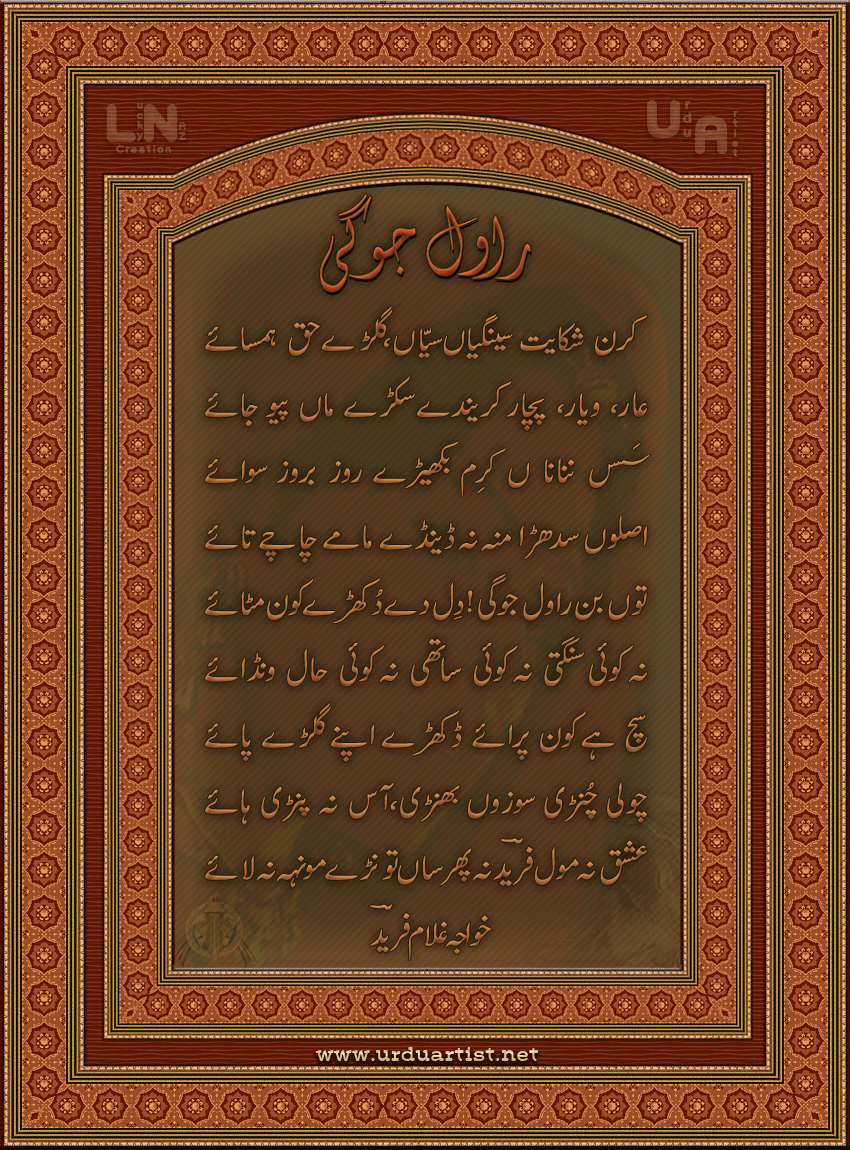 LN Lucky Naz Creation
UA Urdu Artist
راول جوگی
کرن شکایت سینگیاں سیّاں، گلڑے حق ہمسائے
عار، ویار، پچار کریندے سکڑے ماں پیو جائے
سَس ننانا ں کرِم بکھیڑے روز بروز سوائے
اصلوں سدھڑا منہ نہ ڈینڈے مامے چاچے تائے
توں بن راول جوگی! دِل دے دُکھڑے کون مٹائے
نہ کوئی سنگتی نہ کوئی ساتھی نہ کوئی حال ونڈائے
سچ ہے کون پرائے ڈکھڑے اپنے گلڑے پائے
چولی چُنڑی سوزوں بھنڑی، آس نہ پنڑی ہائے
عشق نہ مول فریدؔ نہ پھرساں تو نڑے مونہہ نہ لائے
خواجہ غلام فریدؔ
www.urduartist.net